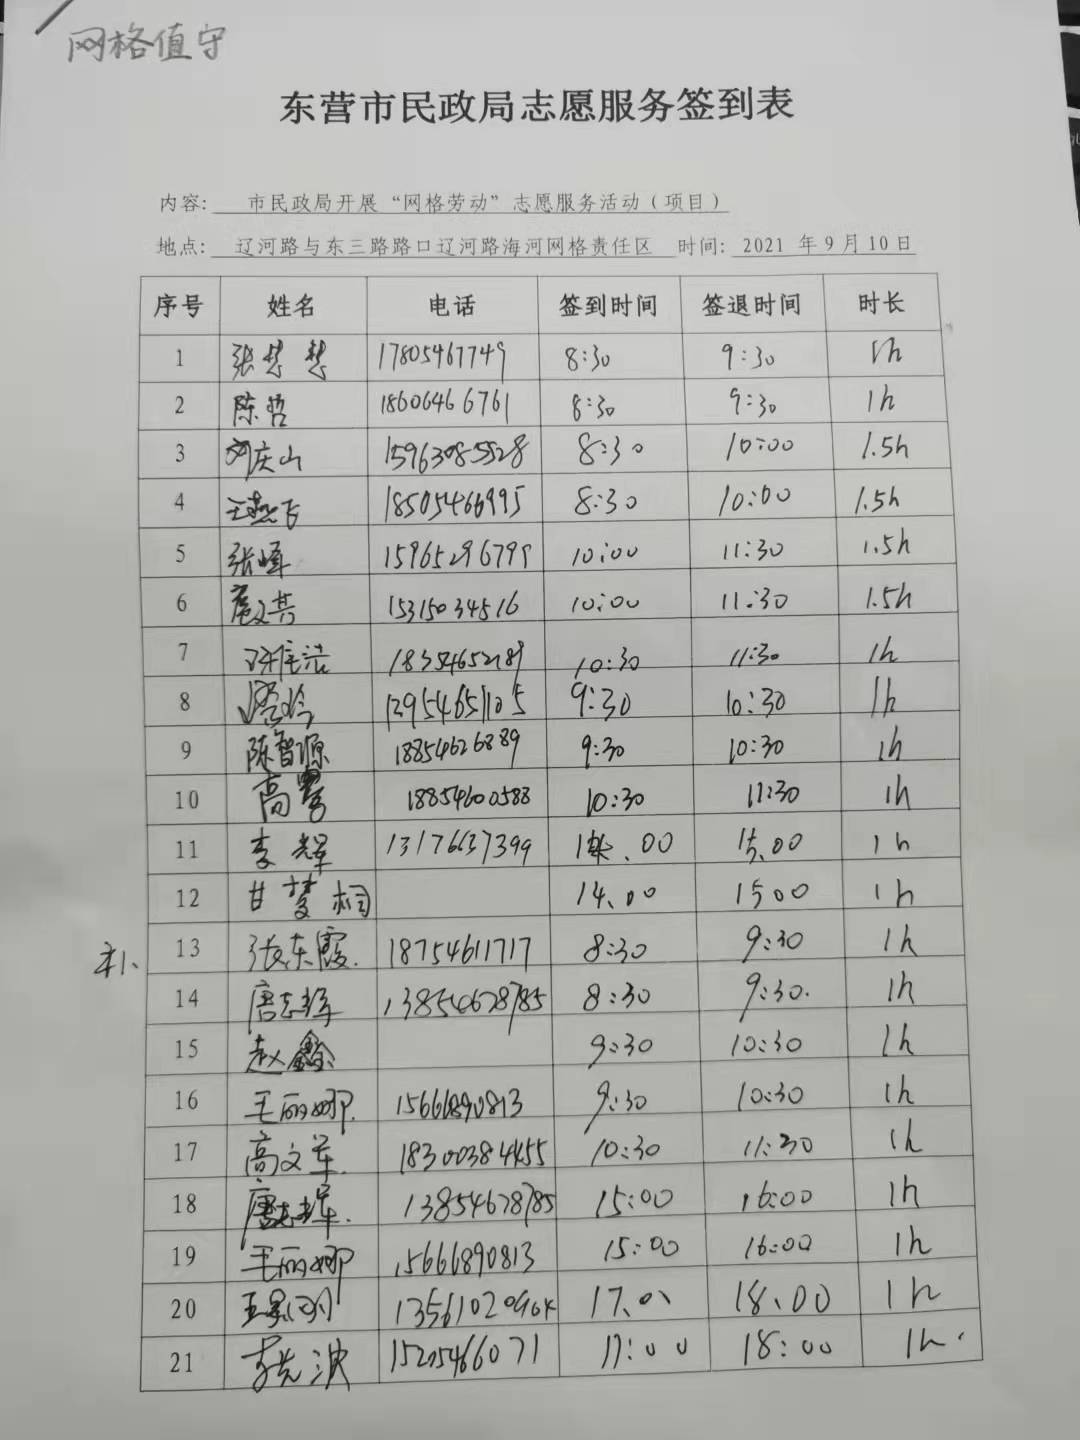 网格值守
东营市民政局志愿服务签到表
内容: 市民政局开展“网格劳动”志愿服务活动（项目）
地点: 辽河路与东三路路口辽河路海河网格责任区 时间: 2021 年 9 月 10 日
序号 姓名 电话 签到时间 签退时间 时长
1 张慧慧 17805467749 8:30 9:30 1h
2 陈哲 18606466761 8:30 9:30 1h
3 刘庆山 15963085528 8:30 10:00 1.5h
4 王燕飞 18505466995 8:30 10:00 1.5h
5 张峰 15965296799 10:00 11:30 1.5h
6 15315034516 10:00 11:30 1.5h
7 18354652189 10:30 11:30 1h
8 13954651105 9:30 10:30 1h
9 陈智源 18854626889 9:30 10:30 1h
10 高 18854600588 10:30 11:30 1h
11 李辉 13176637399 14.00 15.00 1h
12 甘梦桐 14.00 1500 1h
补、 13 张东霞. 18754611717 8:30 9:30 1h
14 唐志军 13854678785 8:30 9:30. 1h
15 赵鑫 9:30 10:30 1h
16 王丽娜. 15666890813 9:30 10:30 1h
17 高文军. 18300384455 10:30 11:30 1h
18 唐志军. 13854678785 15:00 16:00 1h
19 王丽娜 15666890813 15:00 16:00 1h
20 17.00 18.00 1h
21 波 15205466071 17:00 18:00 1h.